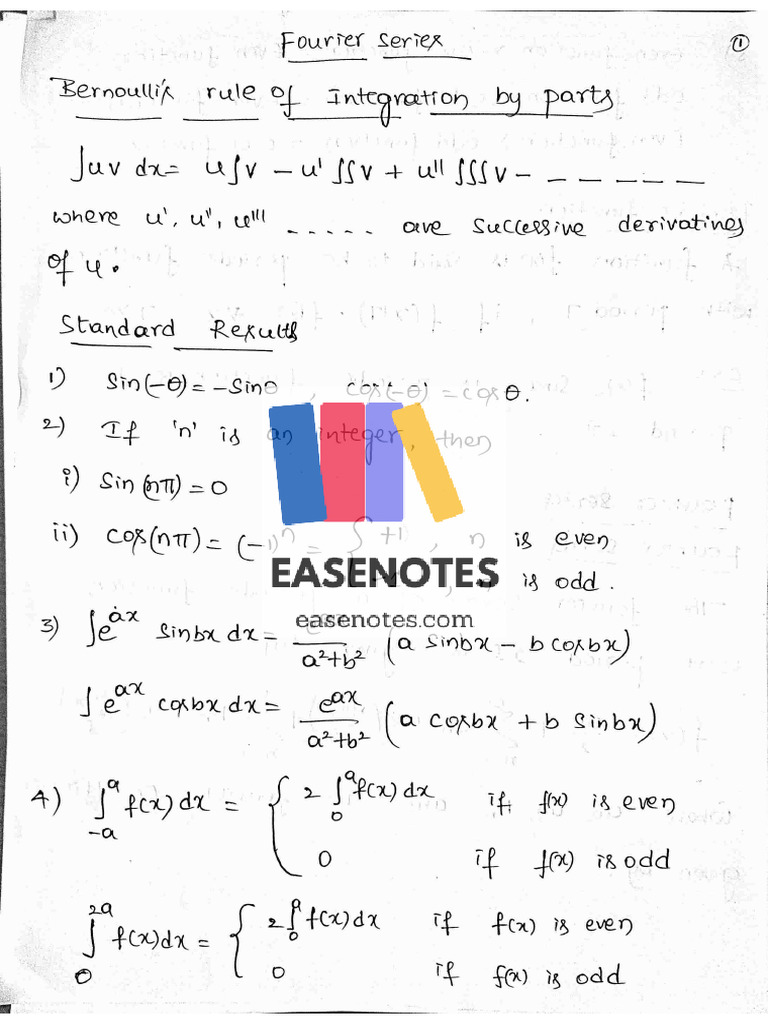 Fourier series
①
Bernoulli's rule of Integration by parts
∫uv dx = u∫v − u' ∫∫v + u'' ∫∫∫v − − − − − −
where u', u'', u''' ..... are successive derivatives
of u.
Standard Results
1) Sin(−θ) = −Sinθ, cos(−θ) = cosθ.
2) If 'n' is an integer, then
i) Sin(nπ) = 0
ii) cos(nπ) = (−1)^n = { +1, n is even
is odd.
EASENOTES
easenotes.com
3) ∫e^ax sinbx dx = /a²+b² (a sinbx − b cosbx)
∫e^ax cosbx dx = e^ax/a²+b² (a cosbx + b sinbx)
4) ∫_{-a}^{a} f(x) dx = { 2 ∫_0^a f(x) dx if, f(x) is even
0 if f(x) is odd
∫_0^{2a} f(x) dx = { 2 ∫_0^a f(x) dx if f(x) is even
0 if f(x) is odd